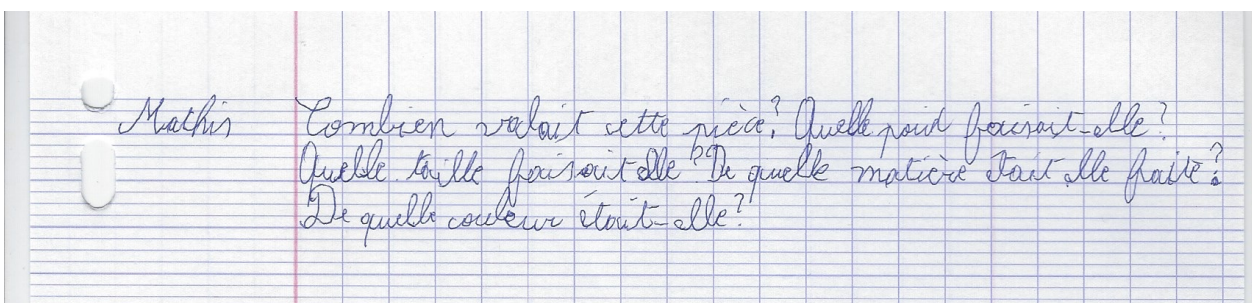 Mathis Combien valait cette pièce? Quelle poid faisait-elle?
Quelle taille faisait elle? De quelle matière était elle faite?
De quelle couleur étout-elle?